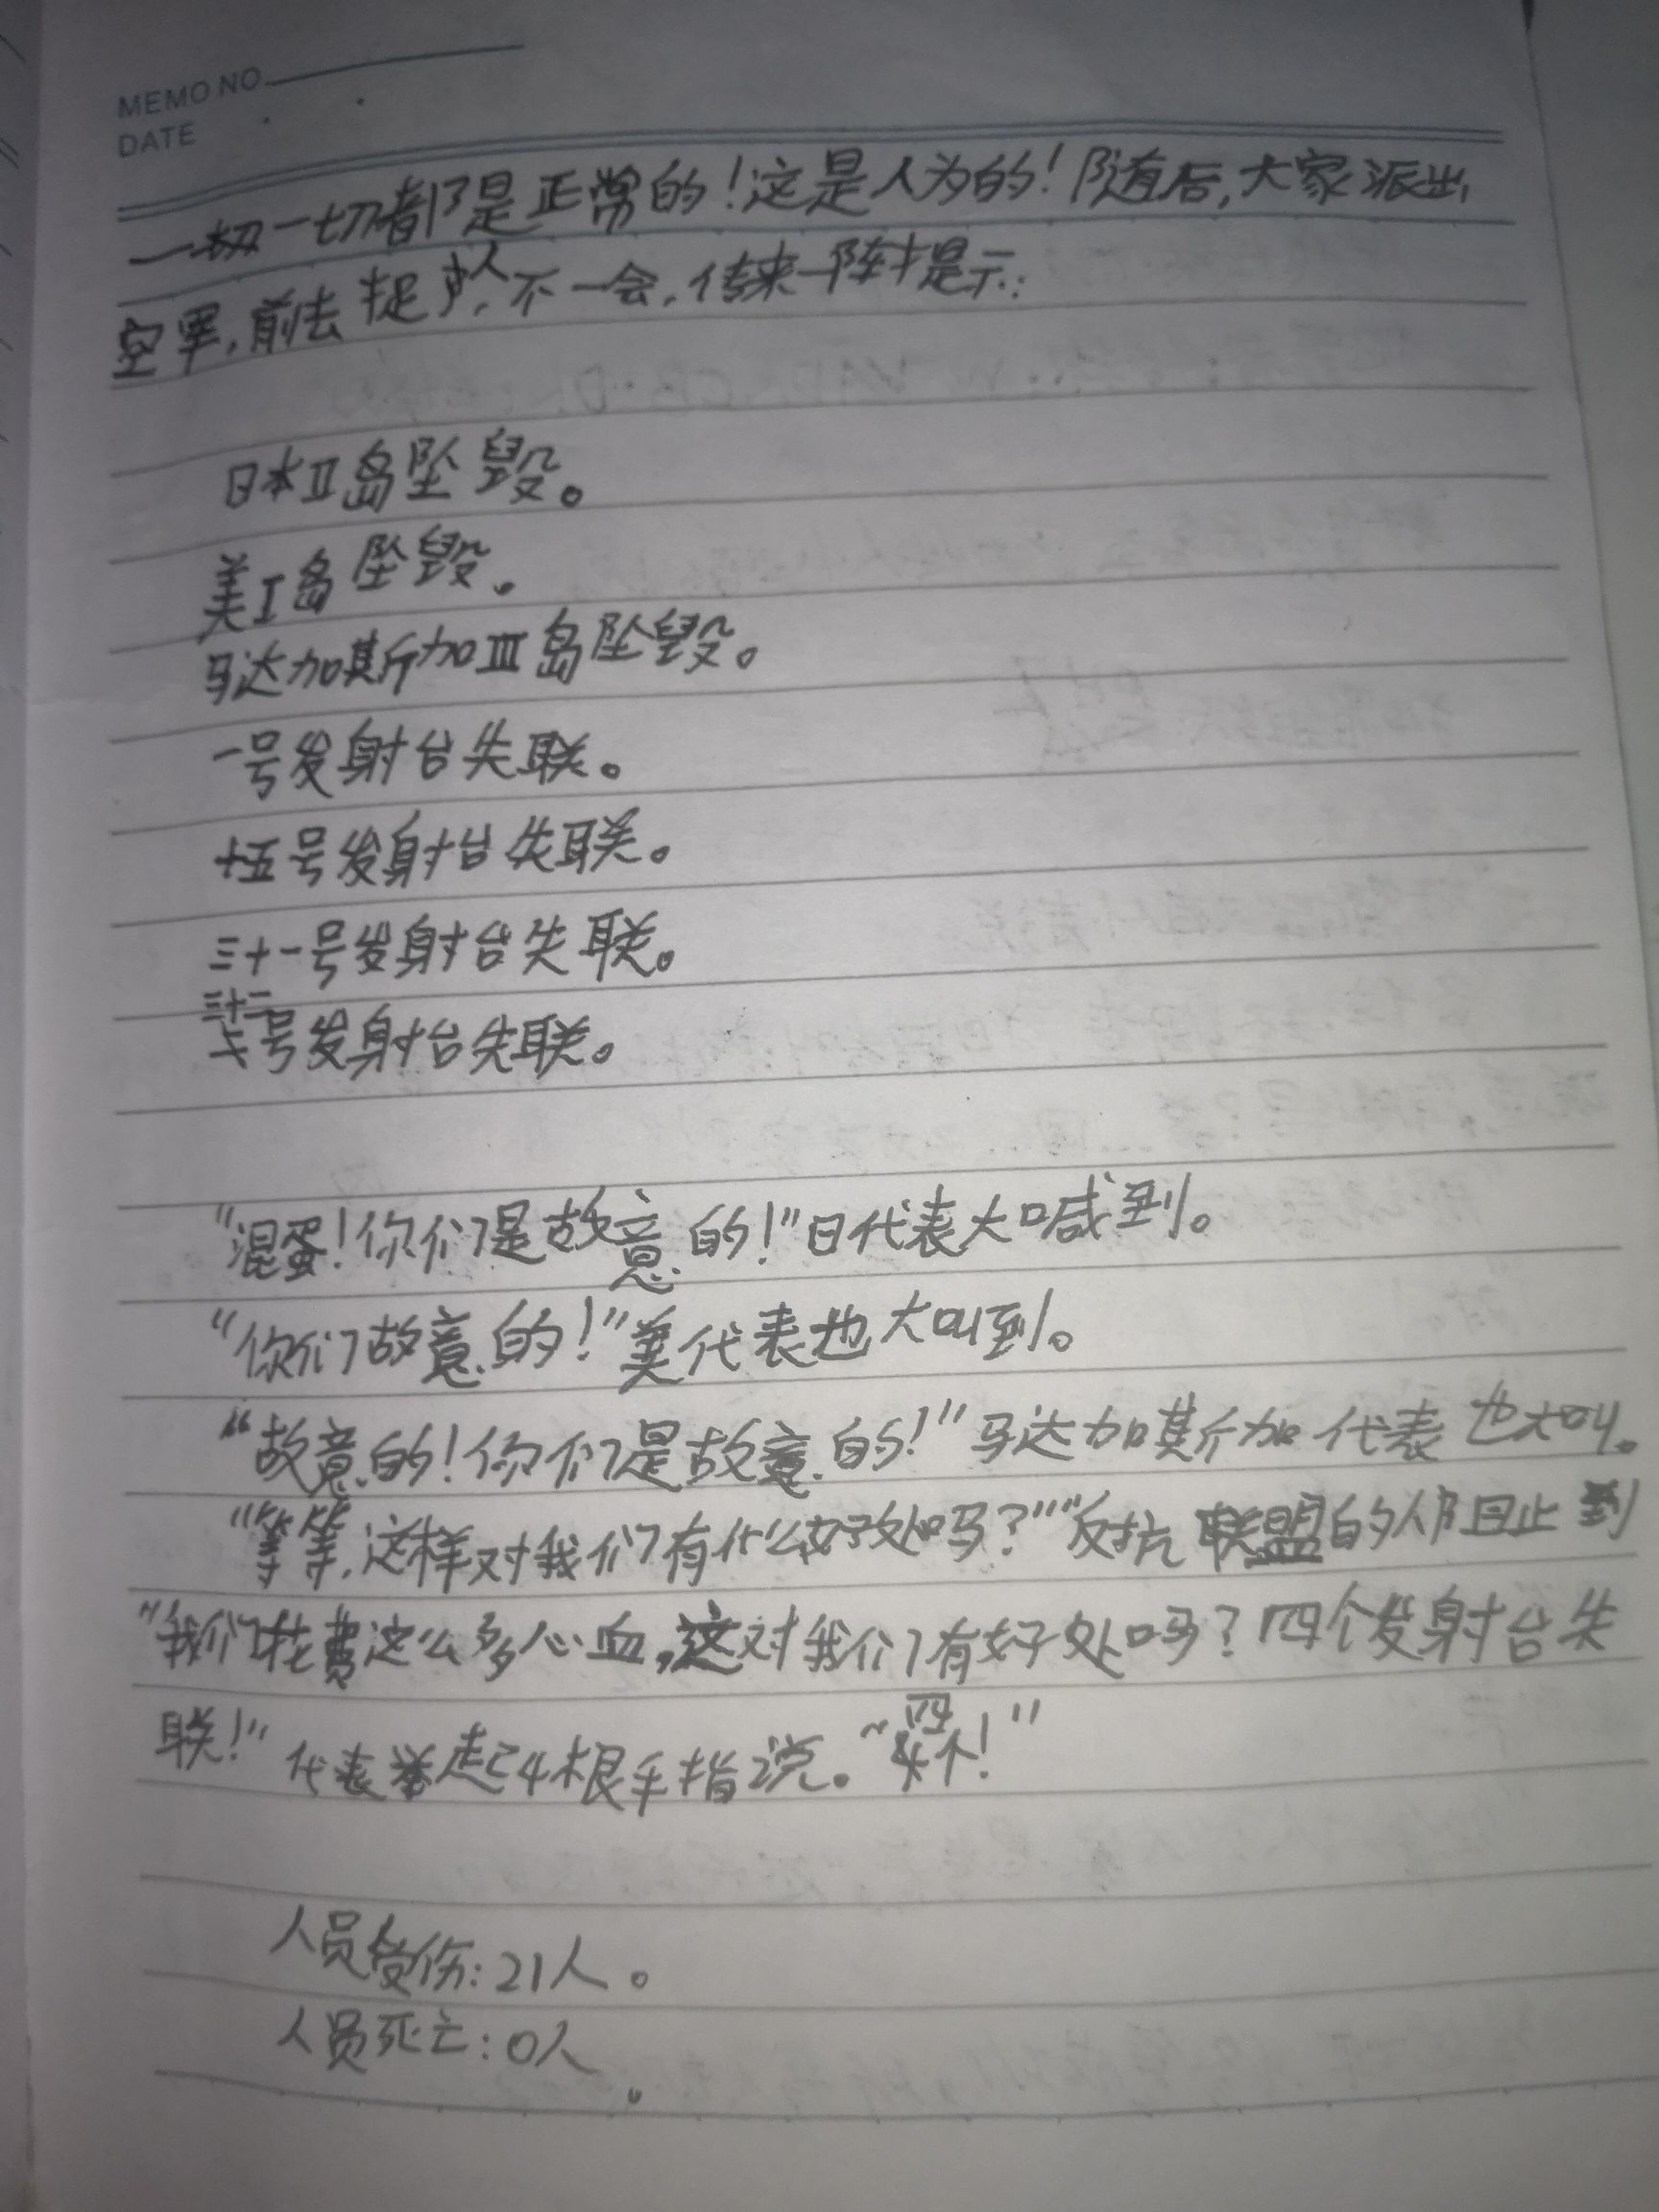 MEMO NO.
DATE
一切一切都是正常的！这是人为的！随后，大家派出
空军，前去捉人，不一会，传来一阵提示：
日本II岛坠毁。
美I岛坠毁。
马达加斯加III岛坠毁。
一号发射台失联。
十五号发射台失联。
三十一号发射台失联。
三十二号发射台失联。
“混蛋！你们是故意的！”日代表大喊到。
“你们故意的！”美代表也大叫到。
“故意的！你们是故意的！”马达加斯加代表也大叫。
“等等，这样对我们有什么好处吗？”“反抗联盟的人阻止到
“我们花费这么多心血，这对我们有好处吗？四个发射台失
联！”代表举起4根手指说。“四个！”
人员受伤：21人。
人员死亡：0人。